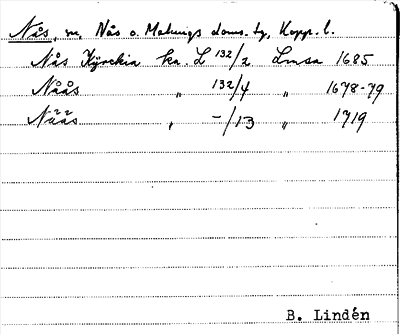 Nås, sn, Nås o. Malungs doms. sg, Kopp. l.
Nås Kyrckia ka. L 132/2 Lmsa 1685
Nåås " 132/4 " 1678-79
Nääs " -/13 " 1719
B. Lindén